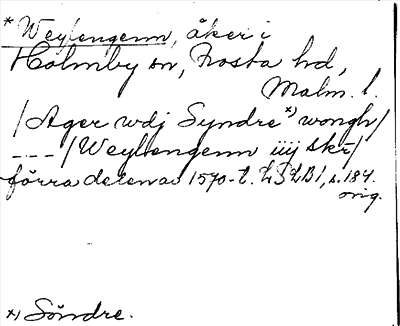 * Weylengenn, åker i
Holmby sn, Frosta hd,
Malm. l.
/Ager wdj Syndre *) wongh/
--- /Weylengenn iiij skr/
förra delen av 1570-t. LSLB1, s. 184.
orig.
*) Söndre.